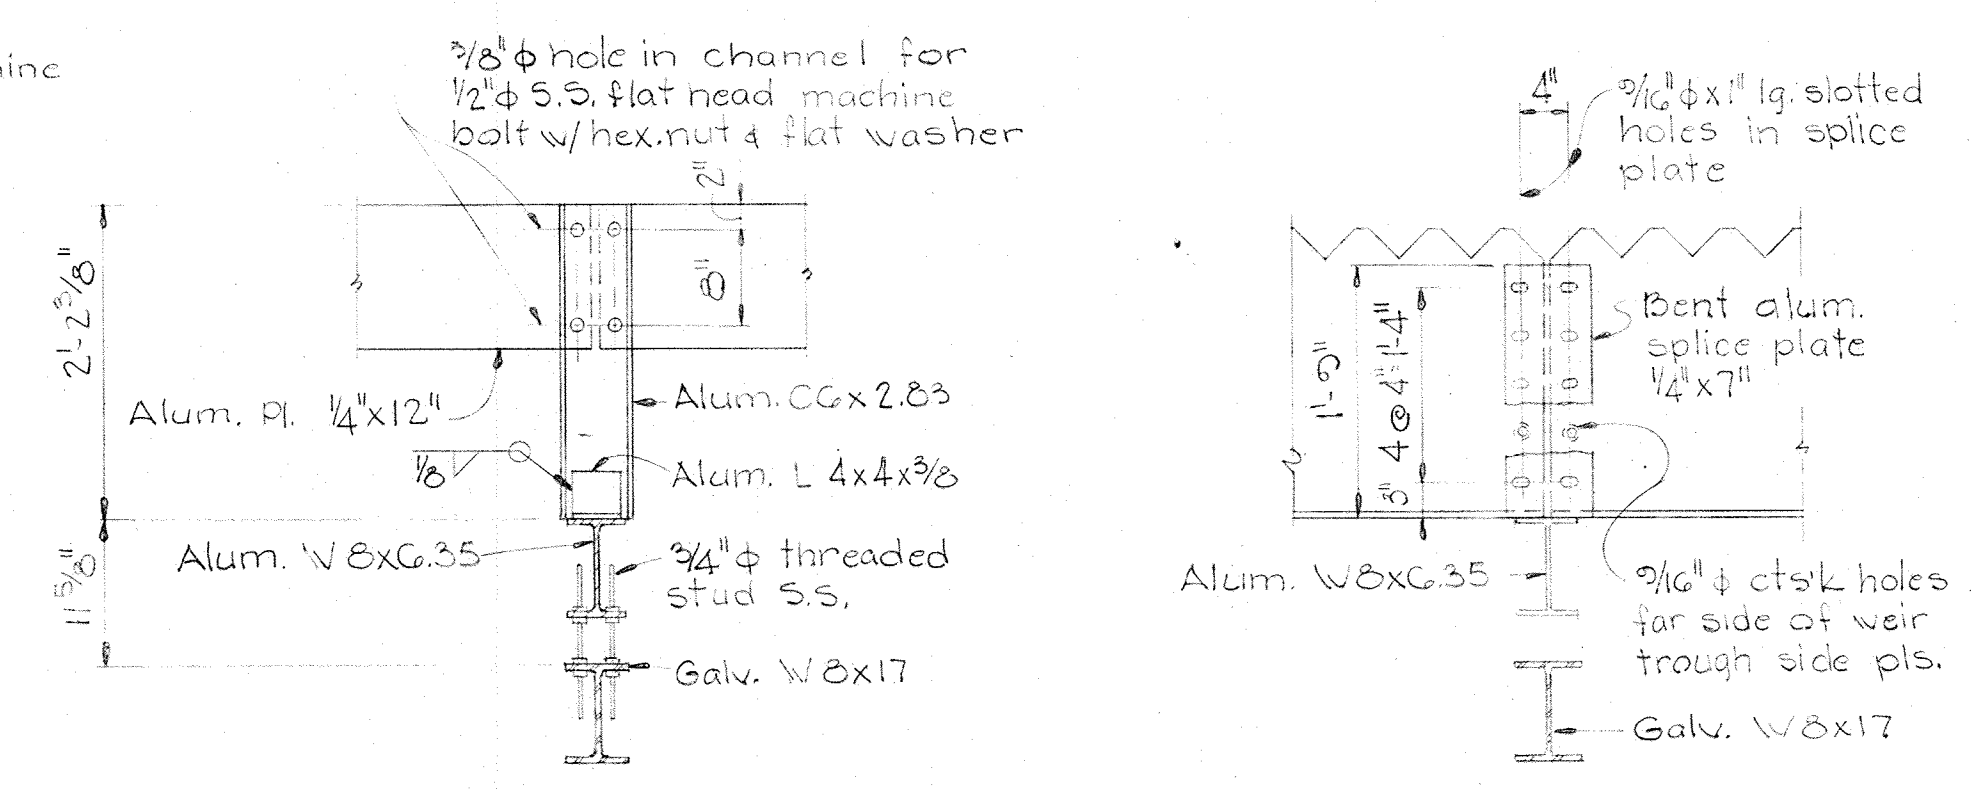 3/8"ϕ hole in channel for
1/2"ϕ S.S. flat head machine
bolt w/ hex. nut & flat washer
2"
8"
2'-2 3/8"
Alum. Pl. 1/4"x12"
Alum. C6x2.83
1/8
Alum. L 4x4x3/8
Alum. W8x6.35
3/4"ϕ threaded
stud S.S.
11 5/8"
Galv. W8x17
4"
9/16"ϕx1" lg. slotted
holes in splice
plate
Bent alum.
splice plate
1/4"x7"
1'-9"
4@4"=1'-4"
3"
Alum. W8x6.35
9/16"ϕ cts'k holes
far side of weir
trough side pls.
Galv. W8x17